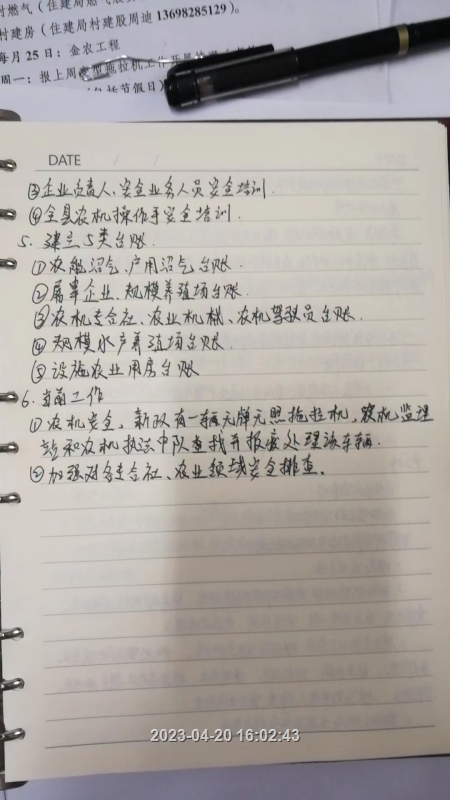 村燃气（住建局燃气股
村建房（住建局村建股周迪 13698285129）。
每月 25 日：金农工程
周一：报上周
（包括节假日）
DATE / /
③企业负责人、安全业务人员安全培训.
④全县农机操作手安全培训.
5. 建立5类台账.
①农舰沼气、户用沼气台账.
②屠宰企业、规模养殖场台账.
③农机专合社、农业机械、农机驾驶员台账.
④规模水产养殖场台账.
⑤设施农业用房台账
6. 当前工作
①农机安全, 新政有一辆无牌无照拖拉机, 农机监理
站和农机执法中队查找并报废处理该车辆.
②加强对各专合社、农业领域安全排查.
2023-04-20 16:02:43